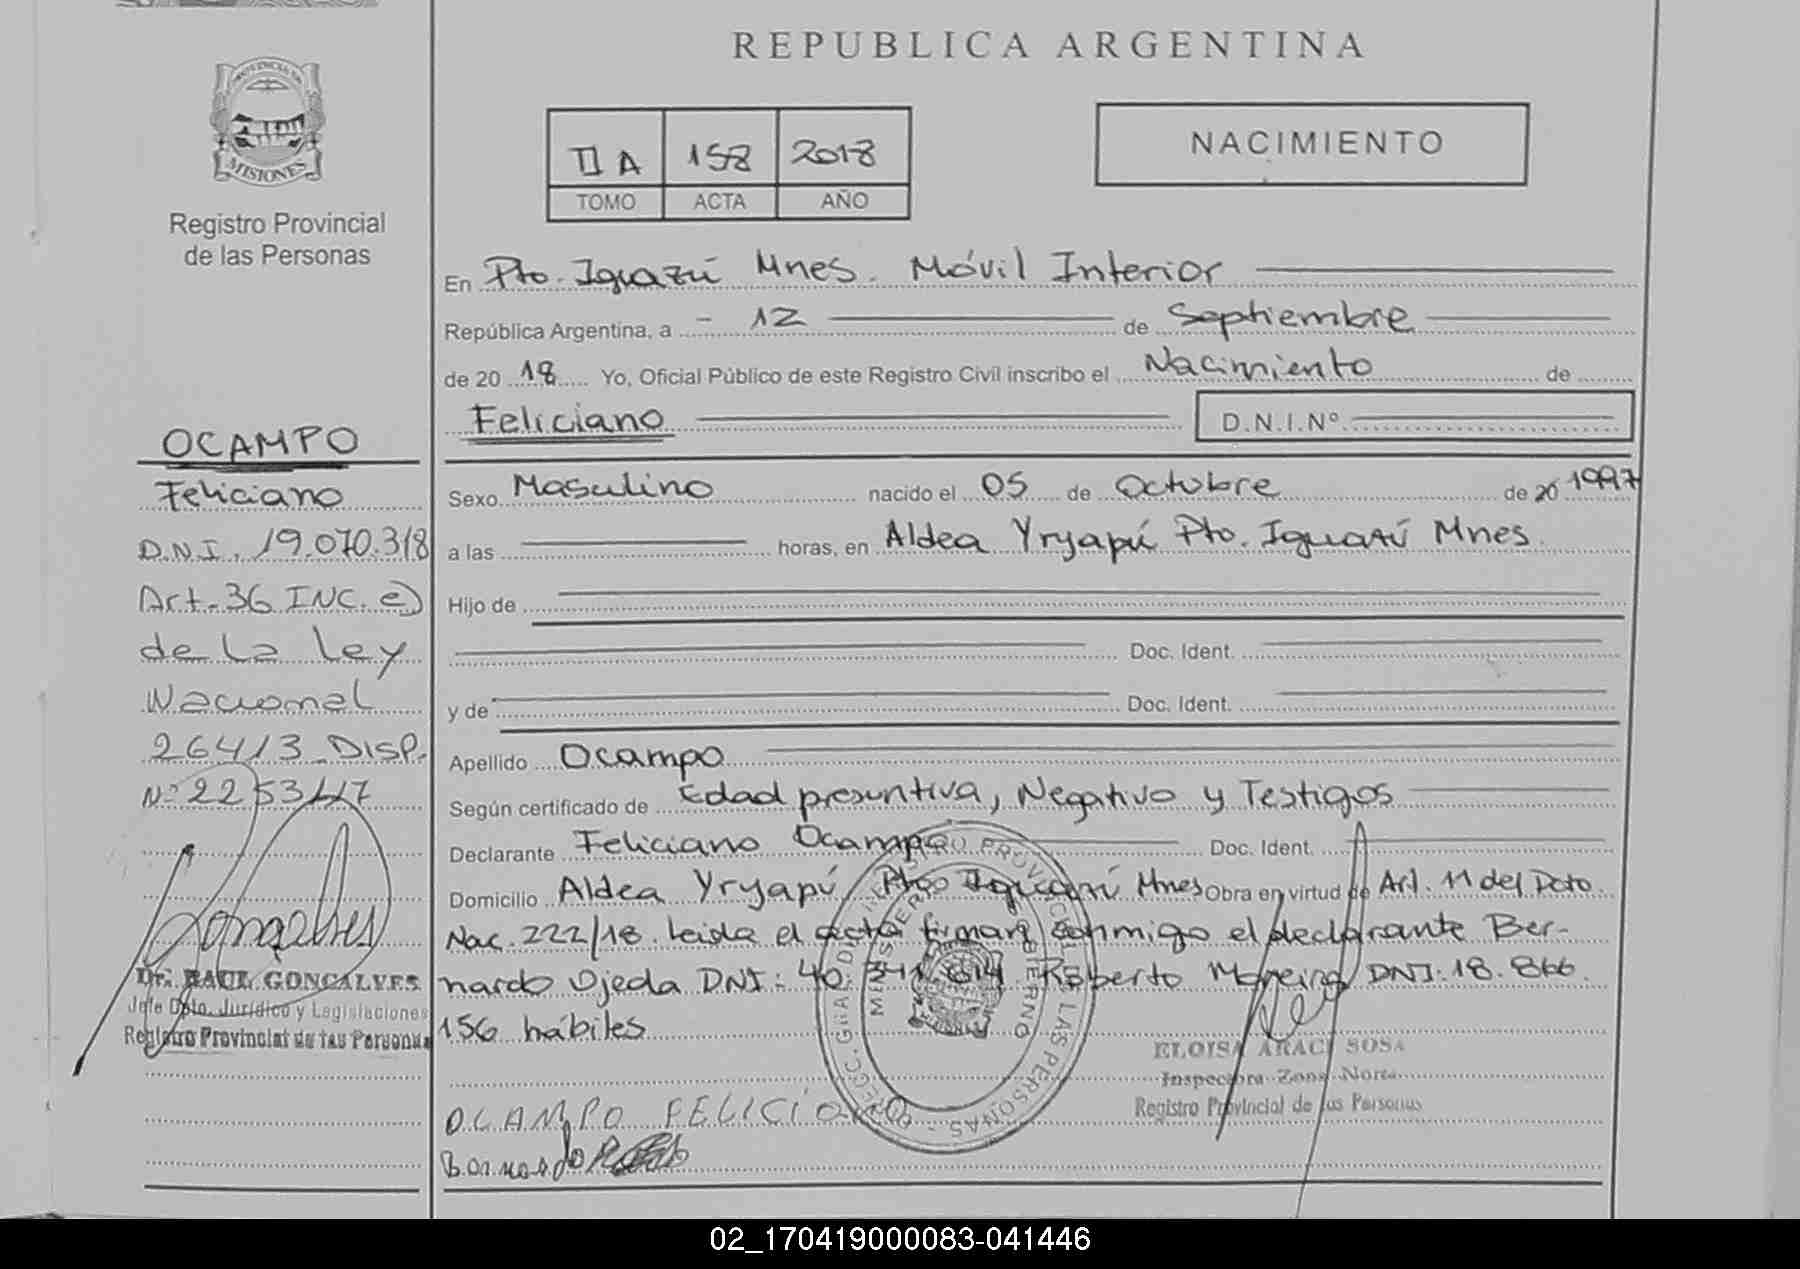 REPUBLICA ARGENTINA
PROVINCIA DE
MISIONES
Registro Provincial
de las Personas
II A 158 2018
TOMO ACTA AÑO
NACIMIENTO
En Pto. Iguazú Mnes. Móvil Interior
República Argentina, a - 12 de Septiembre
de 20 18 Yo, Oficial Público de este Registro Civil inscribo el Nacimiento de
Feliciano D.N.I.Nº
OCAMPO
Feliciano
D.N.I. 19.070.318
Art. 36 INC. e)
de La Ley
Nacional
26413 DISP.
Nº 2253/17
Dr. RAUL GONCALVES
Jefe Dpto. Jurídico y Legislaciones
Registro Provincial de las Personas
Sexo Masculino nacido el 05 de Octubre de 20 1997
a las horas, en Aldea Yryapú Pto. Iguazú Mnes.
Hijo de
Doc. Ident.
y de Doc. Ident.
Apellido Ocampo
Según certificado de Edad presuntiva, Negativo y Testigos
Declarante Feliciano Ocampo Doc. Ident.
Domicilio Aldea Yryapú Pto Iguazú Mnes Obra en virtud de Art. 11 del Dcto
Nac. 222/18. Leida el acta firman conmigo el declarante Ber-
nardo Ojeda DNI: 40.341.614 Roberto Moreira DNI: 18.866.
156 hábiles
ELOISA ARACI SOSA
Inspectora Zona Norte
Registro Provincial de las Personas
OCAMPO FELICIANO
Bernardo
02_170419000083-041446